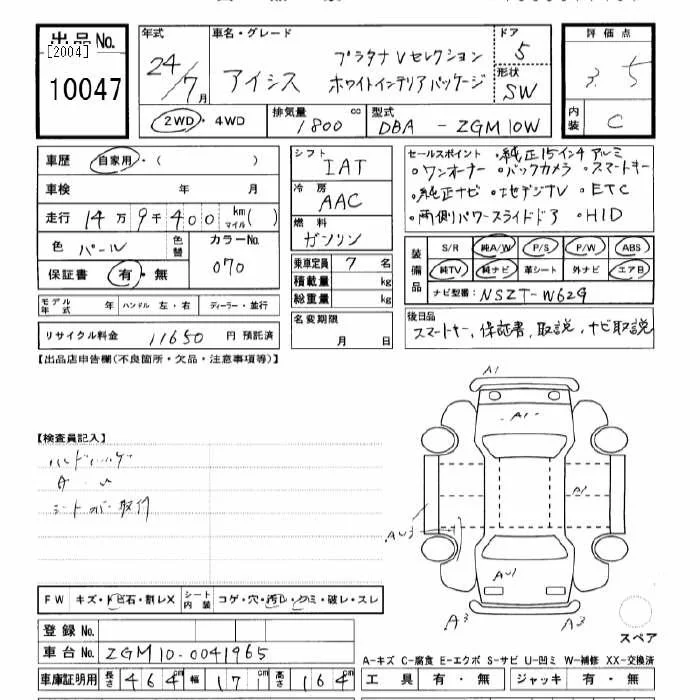 出品No.
[2004]
10047
年式
24/7月
車名・グレード
アイシス
プラタナ Vセレクション
ホワイトインテリアパッケージ
ドア
5
形状
SW
評価点
3.5
内装
C
2WD・4WD
排気量 1800 cc
型式 DBA - ZGM10W
車歴 自家用・( )
車検 年 月
走行 14万9千400 km マイル( )
色 パール
色替
カラーNo. 070
保証書 有・無
モデル年式 年 ハンドル 左・右 ディーラー・並行
リサイクル料金 11650 円 預託済
シフト IAT
冷房 AAC
燃料 ガソリン
乗車定員 7 名
積載量 kg
総重量 kg
名変期限
月 日
セールスポイント ・純正15インチ アルミ
・ワンオーナー ・バックカメラ ・スマートキー
・純正ナビ ・地デジTV ・ETC
・両側パワースライドドア ・HID
装備品
S/R 純A/W P/S P/W ABS
純TV 純ナビ 革シート 外ナビ エアB
ナビ型番: NSZT-W62G
後日品
スマートキー, 保証書, 取説, ナビ取説
【出品店申告欄(不良箇所・欠品・注意事項等)】
【検査員記入】
シートカバー取付
A1
A1
A1
AU3
AU1
A3
A3
スペア
FW キズ・トビ石・割レX シート内装 コゲ・穴・汚レ・シミ・破レ・スレ
登録No.
車台No. ZGM10-0041965
車庫証明用 長さ 464cm 幅 171cm 高さ 164cm
A-キズ C-腐食 E-エクボ S-サビ U-凹ミ W-補修 XX-交換済
工具 有・無 ジャッキ 有・無